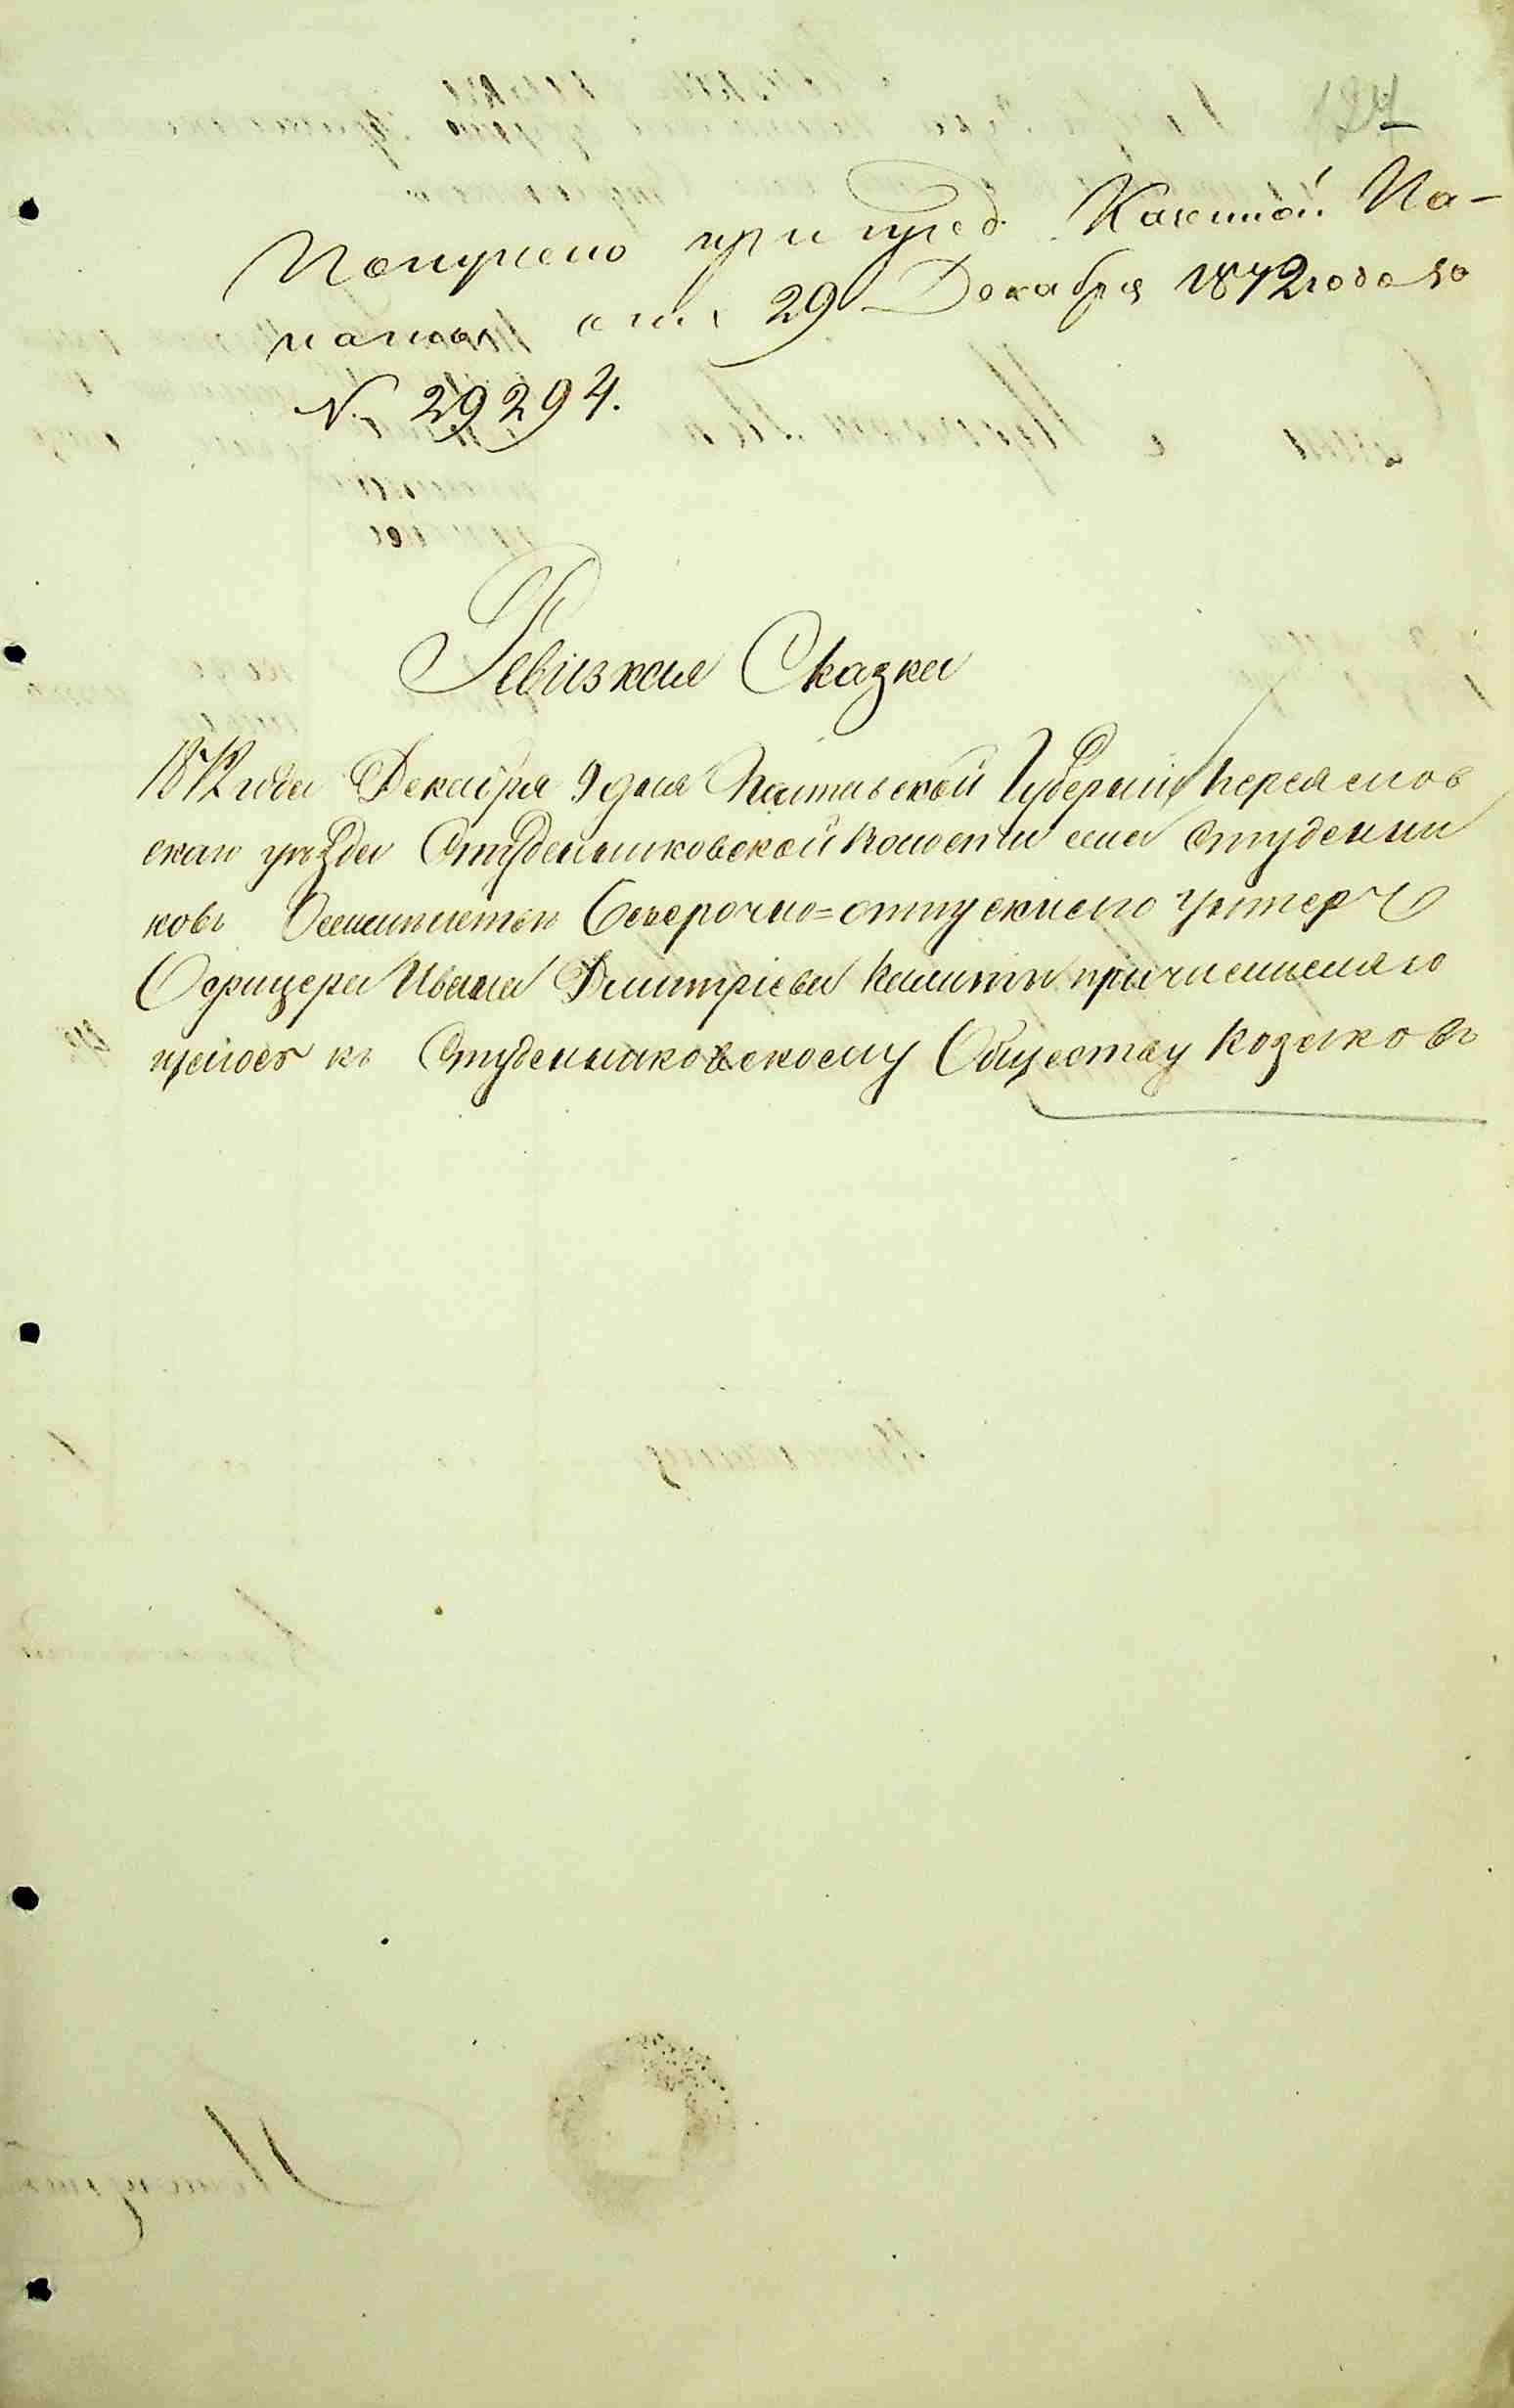 127
Получено при пред. Казенной Па-
латы отъ 29 Декабря 1872 года за
№ 29294.
Ревизкая Сказка
1872 года Декабря 9 дня Полтавской Губерніи Переяслов
скаго уѣзда Студениковской Волости села Студени
ковъ Безсрочно=отпускного Унтеръ
Офицера Ивана Дмитріева причисляемаго
къ Студениковскому Обществу Козаковъ